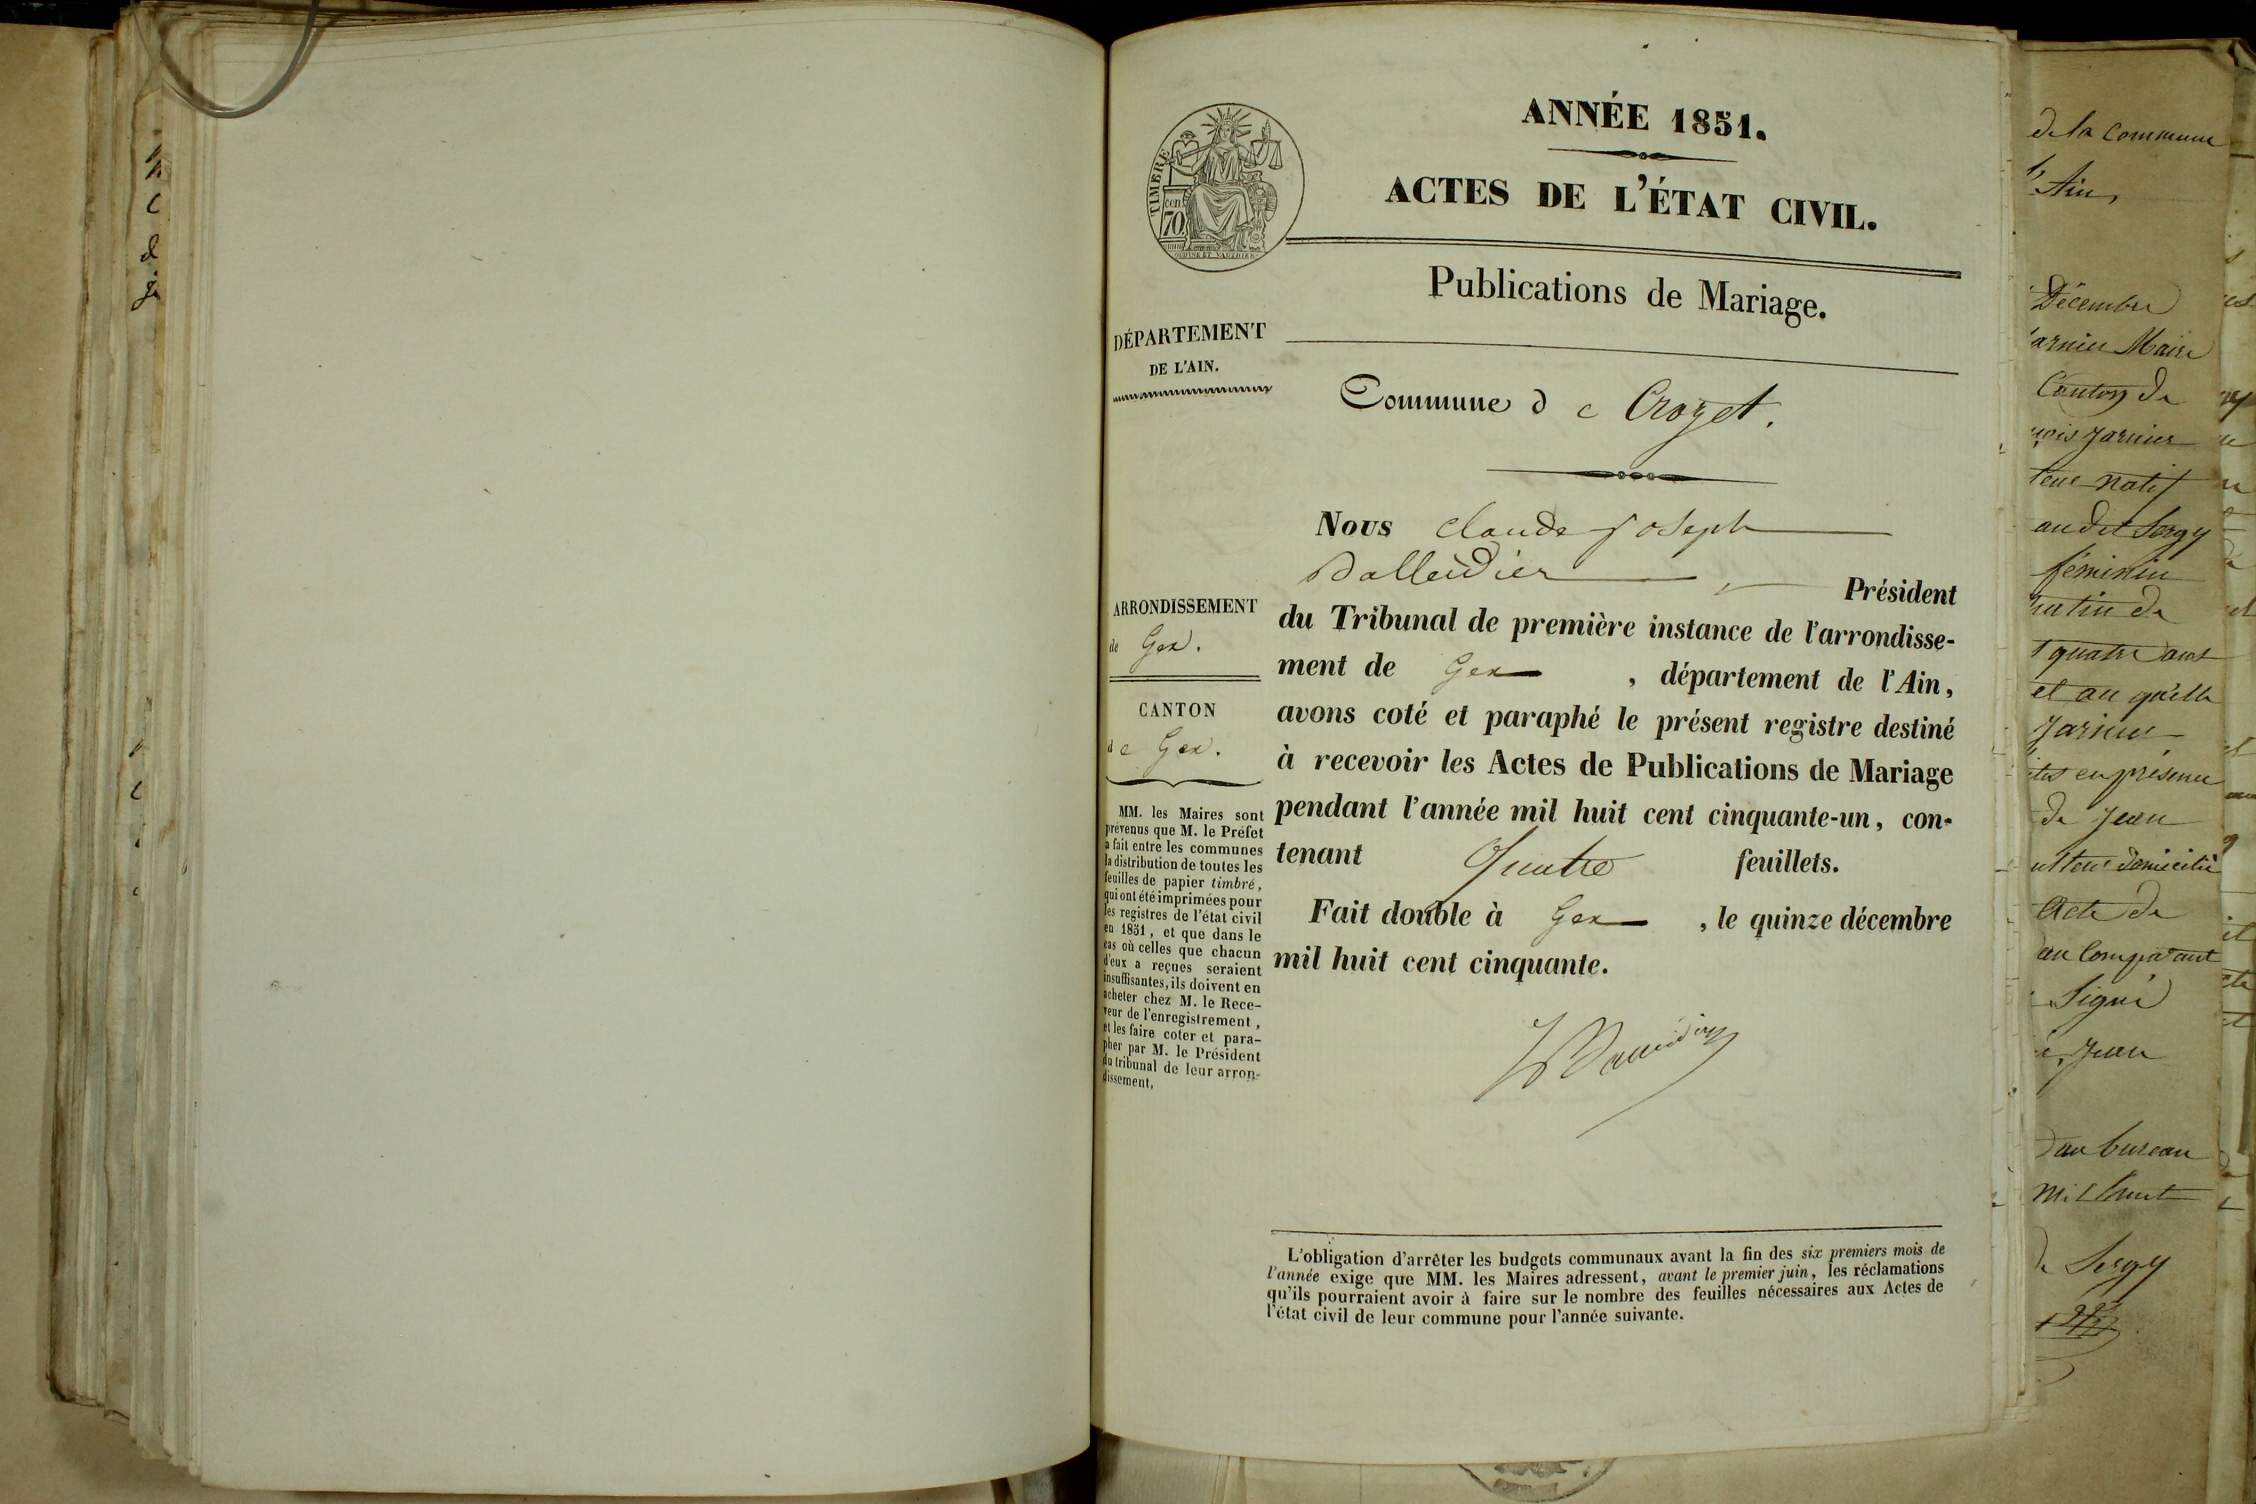 ANNÉE 1851.
ACTES DE L'ÉTAT CIVIL.
TIMBRE
cen.
70
Publications de Mariage.
DÉPARTEMENT
DE L'AIN.
Commune de Crozet.
ARRONDISSEMENT
de Gex.
CANTON
de Gex.
MM. les Maires sont
prévenus que M. le Préfet
a fait entre les communes
la distribution de toutes les
feuilles de papier timbré,
qui ont été imprimées pour
les registres de l'état civil
en 1851, et que dans le
cas où celles que chacun
d'eux a reçues seraient
insuffisantes, ils doivent en
acheter chez M. le Rece-
veur de l'enregistrement,
et les faire coter et para-
pher par M. le Président
du tribunal de leur arron-
dissement.
Nous Claude Joseph
Balleidier, Président
du Tribunal de première instance de l'arrondisse-
ment de Gex, département de l'Ain,
avons coté et paraphé le présent registre destiné
à recevoir les Actes de Publications de Mariage
pendant l'année mil huit cent cinquante-un, con-
tenant Quatre feuillets.
Fait double à Gex, le quinze décembre
mil huit cent cinquante.
L'obligation d'arrêter les budgets communaux avant la fin des six premiers mois de
l'année exige que MM. les Maires adressent, avant le premier juin, les réclamations
qu'ils pourraient avoir à faire sur le nombre des feuilles nécessaires aux Actes de
l'état civil de leur commune pour l'année suivante.
de la Commune
l'Ain,
Décembre
Maire
Canton de
natif
audit Sergy
féminin
matin de
quatre ans
et en présence
de Jean
domicilié
Acte de
au Comparant
Signé
Jean
au bureau
mil huit
de Sergy